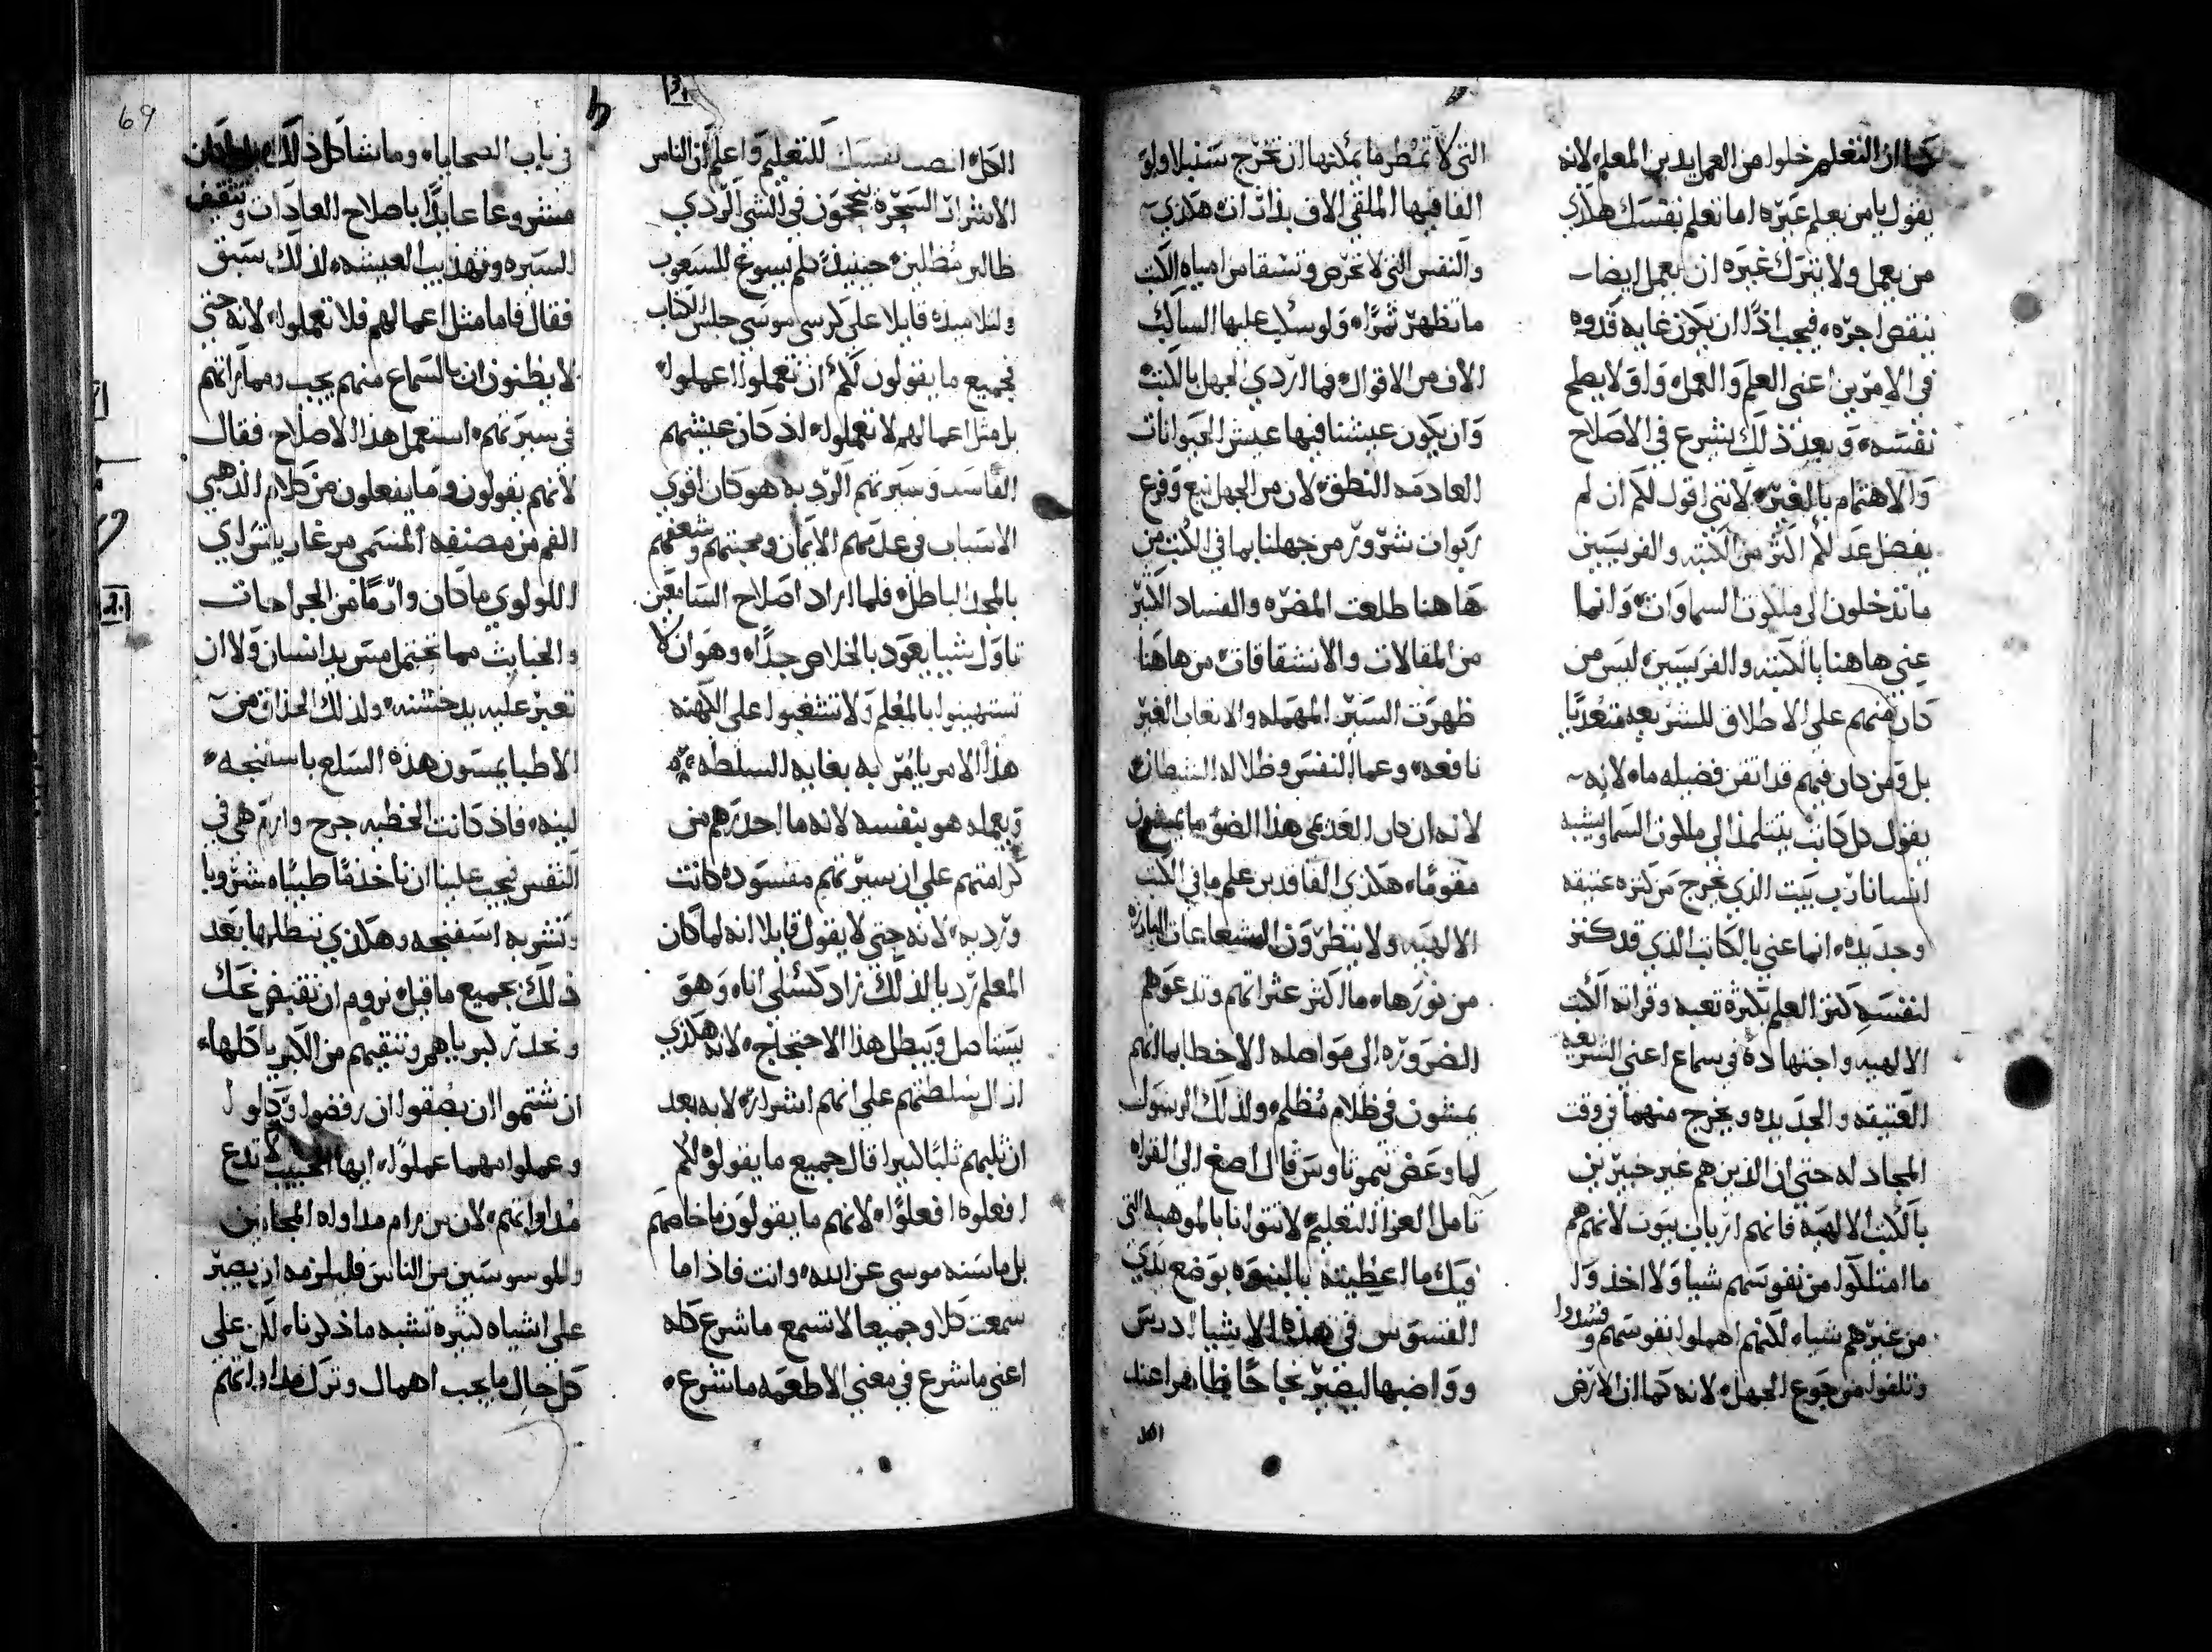 كما ان التعليم خلوا من العمل يدين المعلم لانه
يقول يا من يعلم غيره اما تعلم نفسك هكذي
من يعمل ولا يترك غيره ان يعمل ايضا
ينقص اجره فيجب اذًا ان يكون غايه قدوه
في الامرين اعني العلم والعمل واولا يصلح
نفسه وبعد ذلك يشرع في الاصلاح
والاهتمام بالغير لانني اقول لكم ان لم
يفضل عدلكم اكثر من الكتبه والفريسيين
ما تدخلون الى ملكوت السماوات وانما
عني هاهنا بالكتبه والفريسيين ليس من
كان منهم على الاطلاق للشريعه متعديًا
بل ومن كان فيهم قد اتقن فضيله ما لانه
يقول كل كاتب يتتلمذ الى ملكوت السما يشبه
انسانا رب بيت الذي يخرج من كنزه عتيقه
وجديده انما عني بالكاتب الذي قد كنز
لنفسه كنز العلم بكثرة تعبه وقراته الكتب
الالهيه واجتهاده في سماع اعني الشريعه
العتيقه والجديده ويخرج منهما في وقت
المجادله حتى ان الذين هم غير خبيرين
بالكتب الالهية فانهم ارباب بيوت لانهم هم
ما امتلكوا من نفوسهم شيا ولا اخذوا
من غيرهم شيا لكنهم اهملوا نفوسهم وفسدوا
وتلفوا من جوع الجهل لانه كما ان الارض
التي لا تمطر ما يمكنها ان تخرج سنبلا ولو
القا فيها الملقي الاف بذارات هكذي
والنفس التي لا تحرص وتسقا من امياه الكتب
ما تظهر ثمرًا ولو سكب عليها الساكب
الاف من الاقوال فما اردي الجهل بالكتب
وان يكون عيشنا فيها عيش الحيوانات
العادمه النطق لان من الجهل نبع وفرع
ربوات شرور من جهلنا بما في الكتب من
هاهنا طلعت المضره والفساد الكثير
من المقالات والانشقاقات من هاهنا
ظهرت السير المهمله والاتعاب الغير
نافعه وعما النفس وظلاله الشيطان
لانه ان كان العديمي هذا الضو ما يمشون
مقومًا هكذي الفاقدين علم ما في الكتب
الالهيه ولا ينظرون الشعاعات البارزه
من نورها ما اكثر عثراتهم وتدعوهم
الضروره الى مواصله الاخطا بما انهم
يمشون في ظلام مظلم ولذلك الرسول
لما وعض تيموثاوس قال اصغ الى القراه
تامل العزا التعليم لا تتوانا بالموهبه التي
فيك ما اعطيته بالنبوه بوضع يدي
القسوس في هذه الاشيا ادرس
وواضبها ليصير نجاحًا ظاهرا عند
الكل
الكل انصب نفسك للتعليم واعلم ان الناس
الاشرار السحرة ينجحون في الشي الردي
ظالين مظلين حينيذ كلم يسوع للشعوب
ولتلاميذه قايلا على كرسي موسى جلس الكتاب
فجميع ما يقولون لكم ان تعملوا اعملوا
بل مثل اعمالهم لا تعملوا اذ كان عيشهم
الفاسد وسيرتهم الرديه هو كان اقوي
الاسباب في عدمهم الايمان ومحبتهم وشغفهم
بالمجد الباطل فلما اراد اصلاح السامعين
تاول شيا يعود بالخلاص جدًا وهو ان لا
تستهينوا بالمعلم ولا تتشغبوا على الكهنه
هذا الامر يامر به بغايه السلطه
ويعمله هو بنفسه لانه ما احدرهم من
كرامتهم على ان سيرتهم مفسوده كانت
ورديه لانه حتى لا يقول قايلا انه لما كان
المعلم رديا لذلك زاد كسلي انا وهو
يستاصل ويبطل هذا الاحتجاج لانه هكذي
ازال سلطتهم على انهم اشرار لانه بعد
ان ثلبهم ثلبًا كبيرا قال جميع ما يقولوه لكم
افعلوه افعلوا لانهم ما يقولون ما خاصهم
بل ما سنه موسى عن الله وانت فاذا ما
سمعت كلا وجميعا لا تسمع ما شرع كله
اعني ما شرع في معني الاطعمه ما شرع
في باب الضحايا وما شاكل ذلك بل كان
مشروعا عايدًا باصلاح العادات وتثقيف
السيره وتهذيب العيشه لذلك سبق
فقال فاما مثل اعمالهم فلا تعملوا لانه حتى
لا يظنون ان بالسماع منهم يجب ومماراتهم
في سيرتهم استعمل هذا الاصلاح فقال
لانهم يقولون وما يفعلون من كلام الذهبي
الفم من مصنفه المسمى مرغاريتس اي
اللولوي ما كان وارمًا من الجراحات
والخبايث مما تحتمل مس يد انسان ولا ان
تعبر عليه يد خشنه ولذلك الحذاق من
الاطبا يمسون هذه السلع باسفنجه
لينه فاذ كانت الخطيه جرح وارم هي في
النفس فيجب علينا ان ناخذ ما طبيًا مشروبا
وتشربه اسفنجه وهكذي تنطلها بعد
ذلك بجميع ما قيل نروم ان نقبض عك
ونحدر كبرياهم وننقيهم من الكبريا كلها
ان شتموا ان بصقوا ان رفضوا وكلوا
وعملوا مهما عملوا ايها الحبيب لا تدع
مداواتهم لان من يرام مداواه المجانين
والموسوسين من الناس فليلزمه ان يصبر
على اشياء كثيره تشبه ما ذكرنا لكن على
كل حال ما يجب اهمال وترك مداواتهم
69